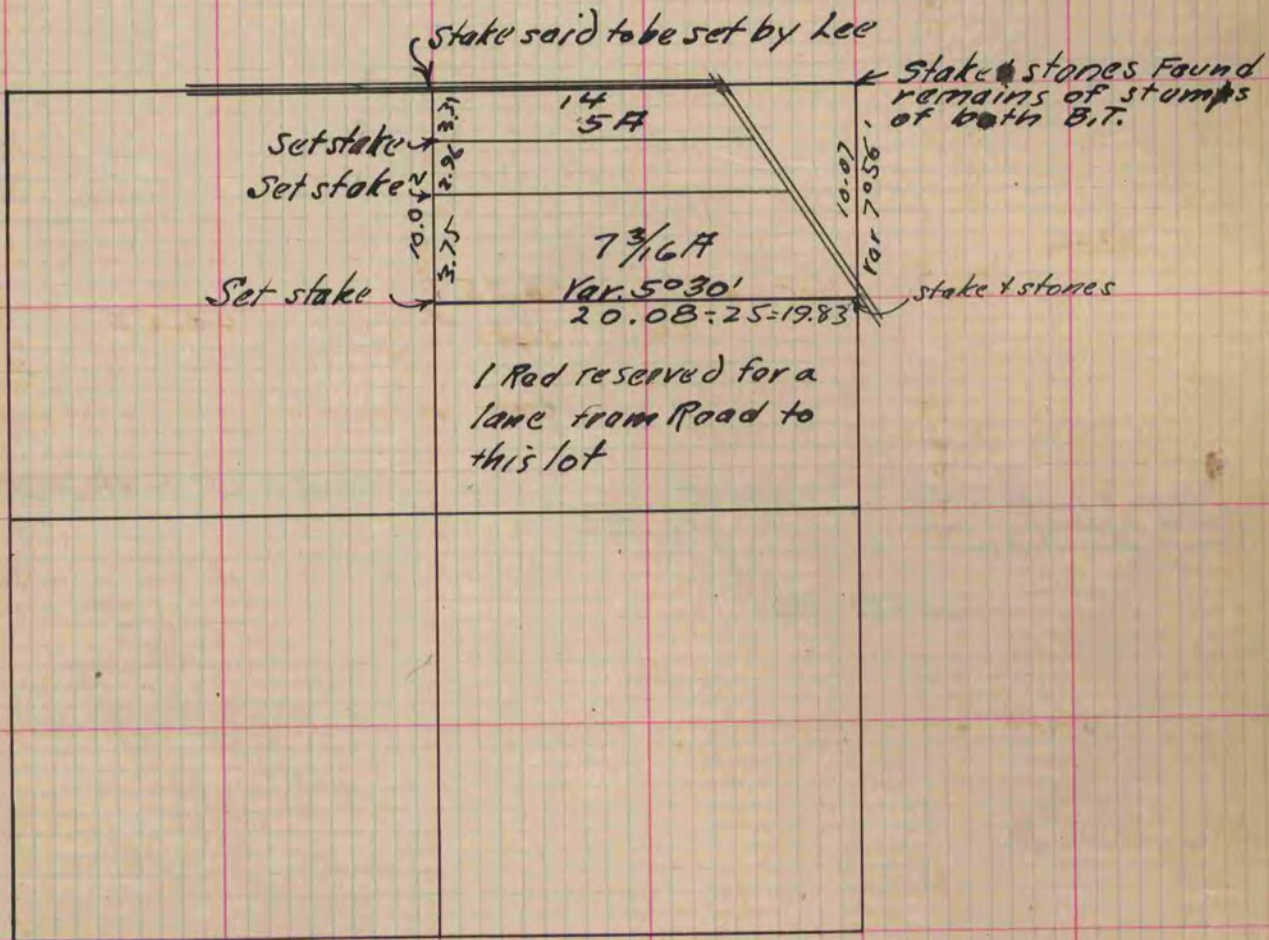 Stake said to be set by Lee
Stake & stones Found
remains of stumps
of both B.T.
14
5 A
3.31
Set stake
2.96
Set stake
10.02
3.75
7 3/16 A
Var. 5°30'
20.08÷25=19.83
10.07
Var 7°56'
Set stake
stake & stones
1 Rod reserved for a
lane from Road to
this lot